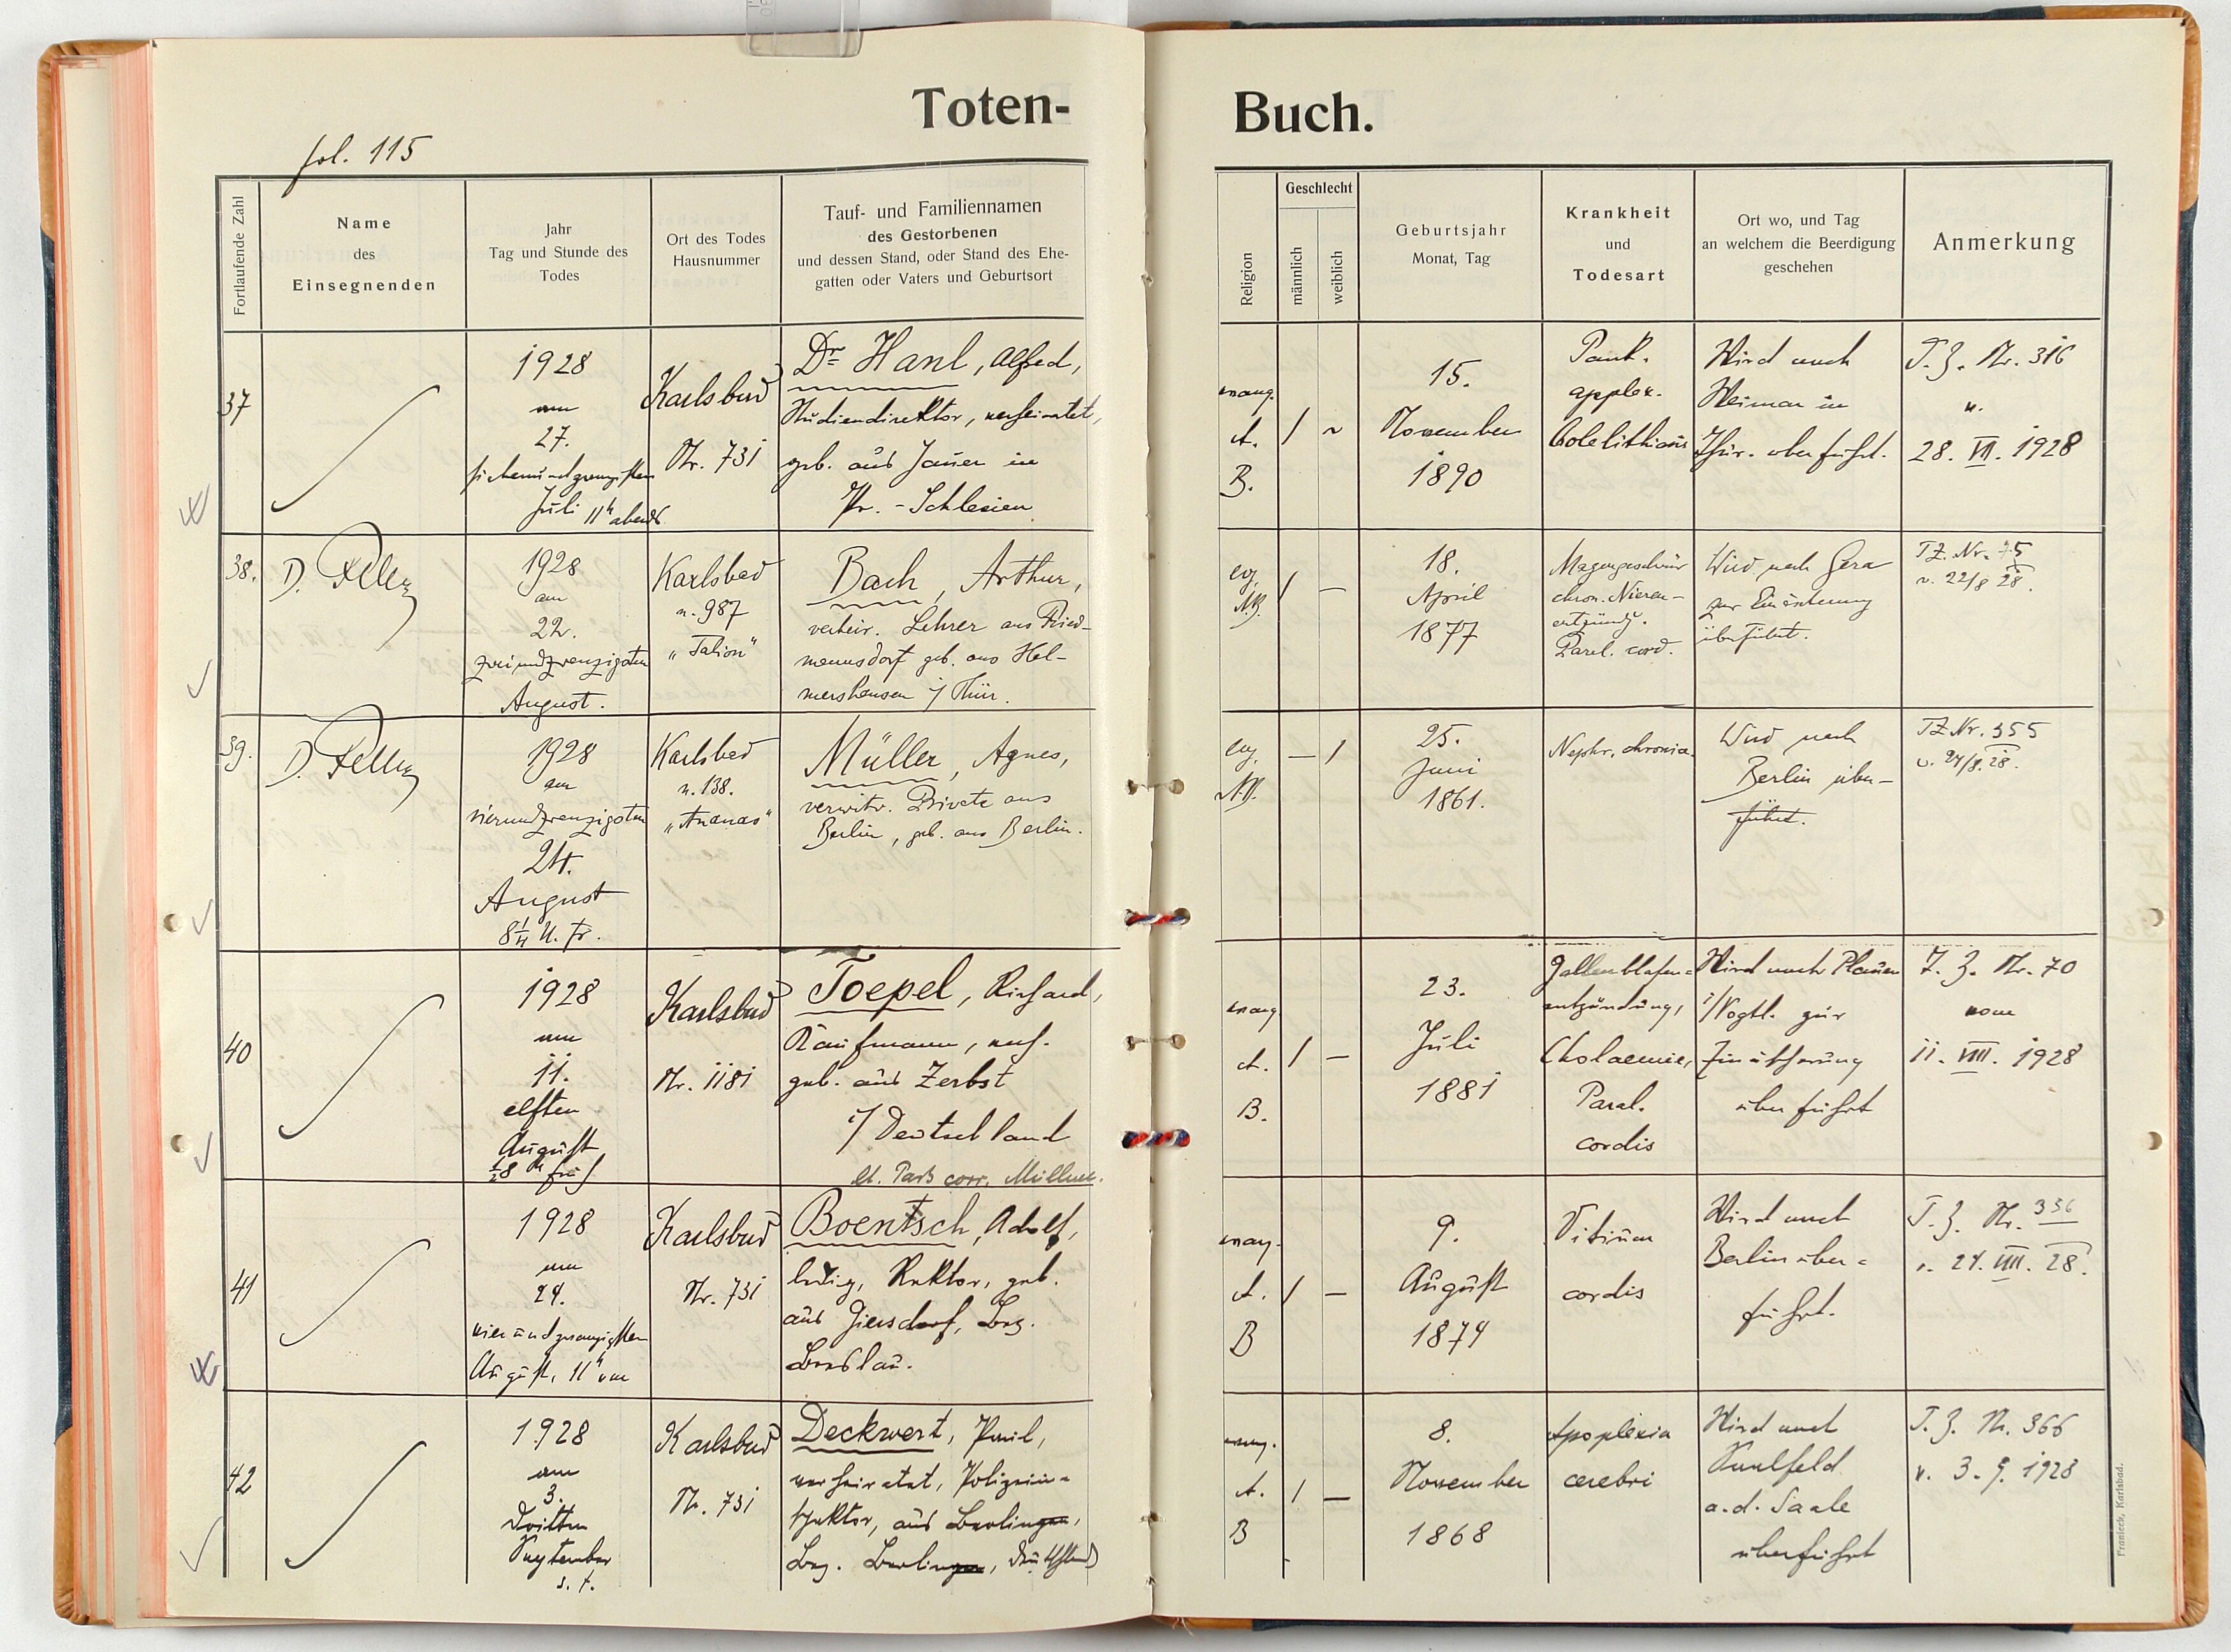 Toten-
Buch.
fol. 115
Fortlaufende Zahl
Name
des
Einsegnenden
Jahr
Tag und Stunde des
Todes
Ort des Todes
Hausnummer
Tauf- und Familiennamen
des Gestorbenen
und dessen Stand, oder Stand des Ehe-
gatten oder Vaters und Geburtsort
Religion
Geschlecht
männlich
weiblich
Geburtsjahr
Monat, Tag
Krankheit
und
Todesart
Ort wo, und Tag
an welchem die Beerdigung
geschehen
Anmerkung
37
1928
am
27.
siebenundzwanzigsten
Juli 11h abends
Karlsbad
Nr. 731
Dr Hanl, Alfred,
Studiendirektor, verheiratet,
geb. aus Jauer in
Pr. - Schlesien
evang.
A.
B.
/ ~
15.
November
1890
Pank.
applex.
Colelithiasis
Wird nach
Weimar in
Thür. überführt.
T. Z. Nr. 316
v.
28. VII. 1928
38.
D.
1928
am
22.
zweiundzwanzigsten
August.
Karlsbad
n. 987
Bach, Arthur,
verheir. Lehrer aus Fried-
mannsdorf geb. aus Hel-
mershausen i/ Thür.
ev.
A.B.
/ —
18.
April
1877
Magengeschwür
chron. Nieren-
entzündg.
Paral. cord.
Wird nach Gera
zur Einäscherung
überführt.
TZ. Nr. 75
v. 22/8 28.
39.
D.
1928
am
vierundzwanzigsten
24.
August
8 1/4 U. Fr.
Karlsbad
n. 138.
„Ananas"
Müller, Agnes,
verwitw. Private aus
Berlin, geb. aus Berlin.
ev.
A.B.
— /
25.
Juni
1861.
Nephr. chronica.
Wird nach
Berlin über-
führt.
TZ Nr. 355
v. 24/8. 28.
40
1928
am
11.
elften
August
1/28 h früh
Karlsbad
Nr. 1181
Toepel, Richard,
Kaufmann, verh.
geb. aus Zerbst
i/ Deutschland
lt. Paß corr. Müllner.
evang
A.
B.
/ —
23.
Juli
1881
Gallenblasen=
entzündung,
Cholaemie,
Paral.
cordis
Wird nach Plauen
i/Vogtl. zur
Einäscherung
überführt
T. Z. Nr. 70
vom
11. VIII. 1928
41
1928
am
24.
vierundzwanzigsten
August, 11h vm
Karlsbad
Nr. 731
Boentsch, Adolf,
ledig, Rektor, geb.
aus Giersdorf, Bez.
Breslau.
evang.
A.
B
/ —
9.
August
1874
Vitium
cordis
Wird nach
Berlin über=
führt.
T. Z. Nr. 356
v. 24. VIII. 28.
42
1928
am
3.
dritten
September
Karlsbad
Nr. 731
Deckwert, Paul,
verheiratet, Polizein=
spektor, aus Berlingen,
Bez. Berlingen, Deutschland
evang.
A.
B
/ —
8.
November
1868
Apoplexia
cerebri
Wird nach
Saalfeld
a. d. Saale
überführt
T. Z. Nr. 366
v. 3. 9. 1928
Franieck, Karlsbad.